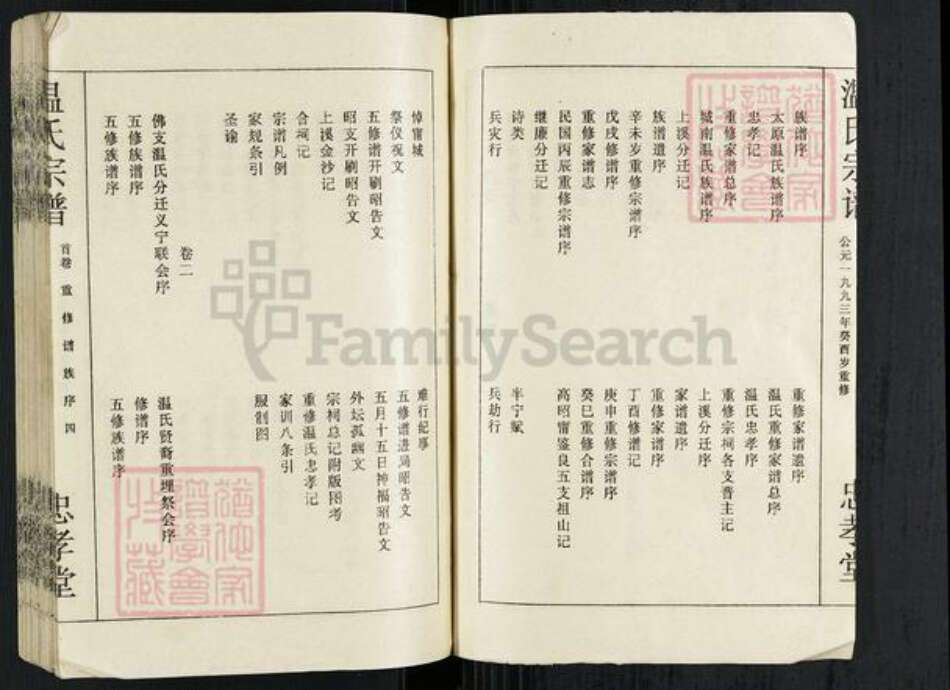 温氏宗谱
公元一九九三年癸酉岁重修
忠孝堂
族谱序
太原温氏族谱序
忠孝记
重修家谱总序
城南温氏族谱序
上溪分迁记
族谱遗序
辛未岁重修宗谱序
戊戌修谱序
重修家谱志
民国丙辰重修宗谱序
继廉分迁记
诗类
兵灾行
重修家谱遗序
温氏重修家谱总序
温氏忠孝序
重修宗祠各支晋主记
上溪分迁序
家谱遗序
重修家谱序
丁酉修谱记
庚申重修宗谱序
癸巳重修合谱序
高昭甯鉴良五支祖山记
半宁赋
兵劫行
悼甯城
祭仪祝文
五修谱开刷昭告文
昭支开刷昭告文
上溪金沙记
合祠记
宗谱凡例
家规条引
圣谕
难行纪事
五修谱进局昭告文
五月十五日神福昭告文
外坛孤幽文
宗祠总记附版图考
重修温氏忠孝记
家训八条引
服制图
卷二
佛支温氏分迁义宁联会序
五修族谱序
五修族谱序
温氏贤裔重理祭会序
修谱序
五修族谱序
温氏宗谱
首卷 重修谱族序 四
忠孝堂
FamilySearch